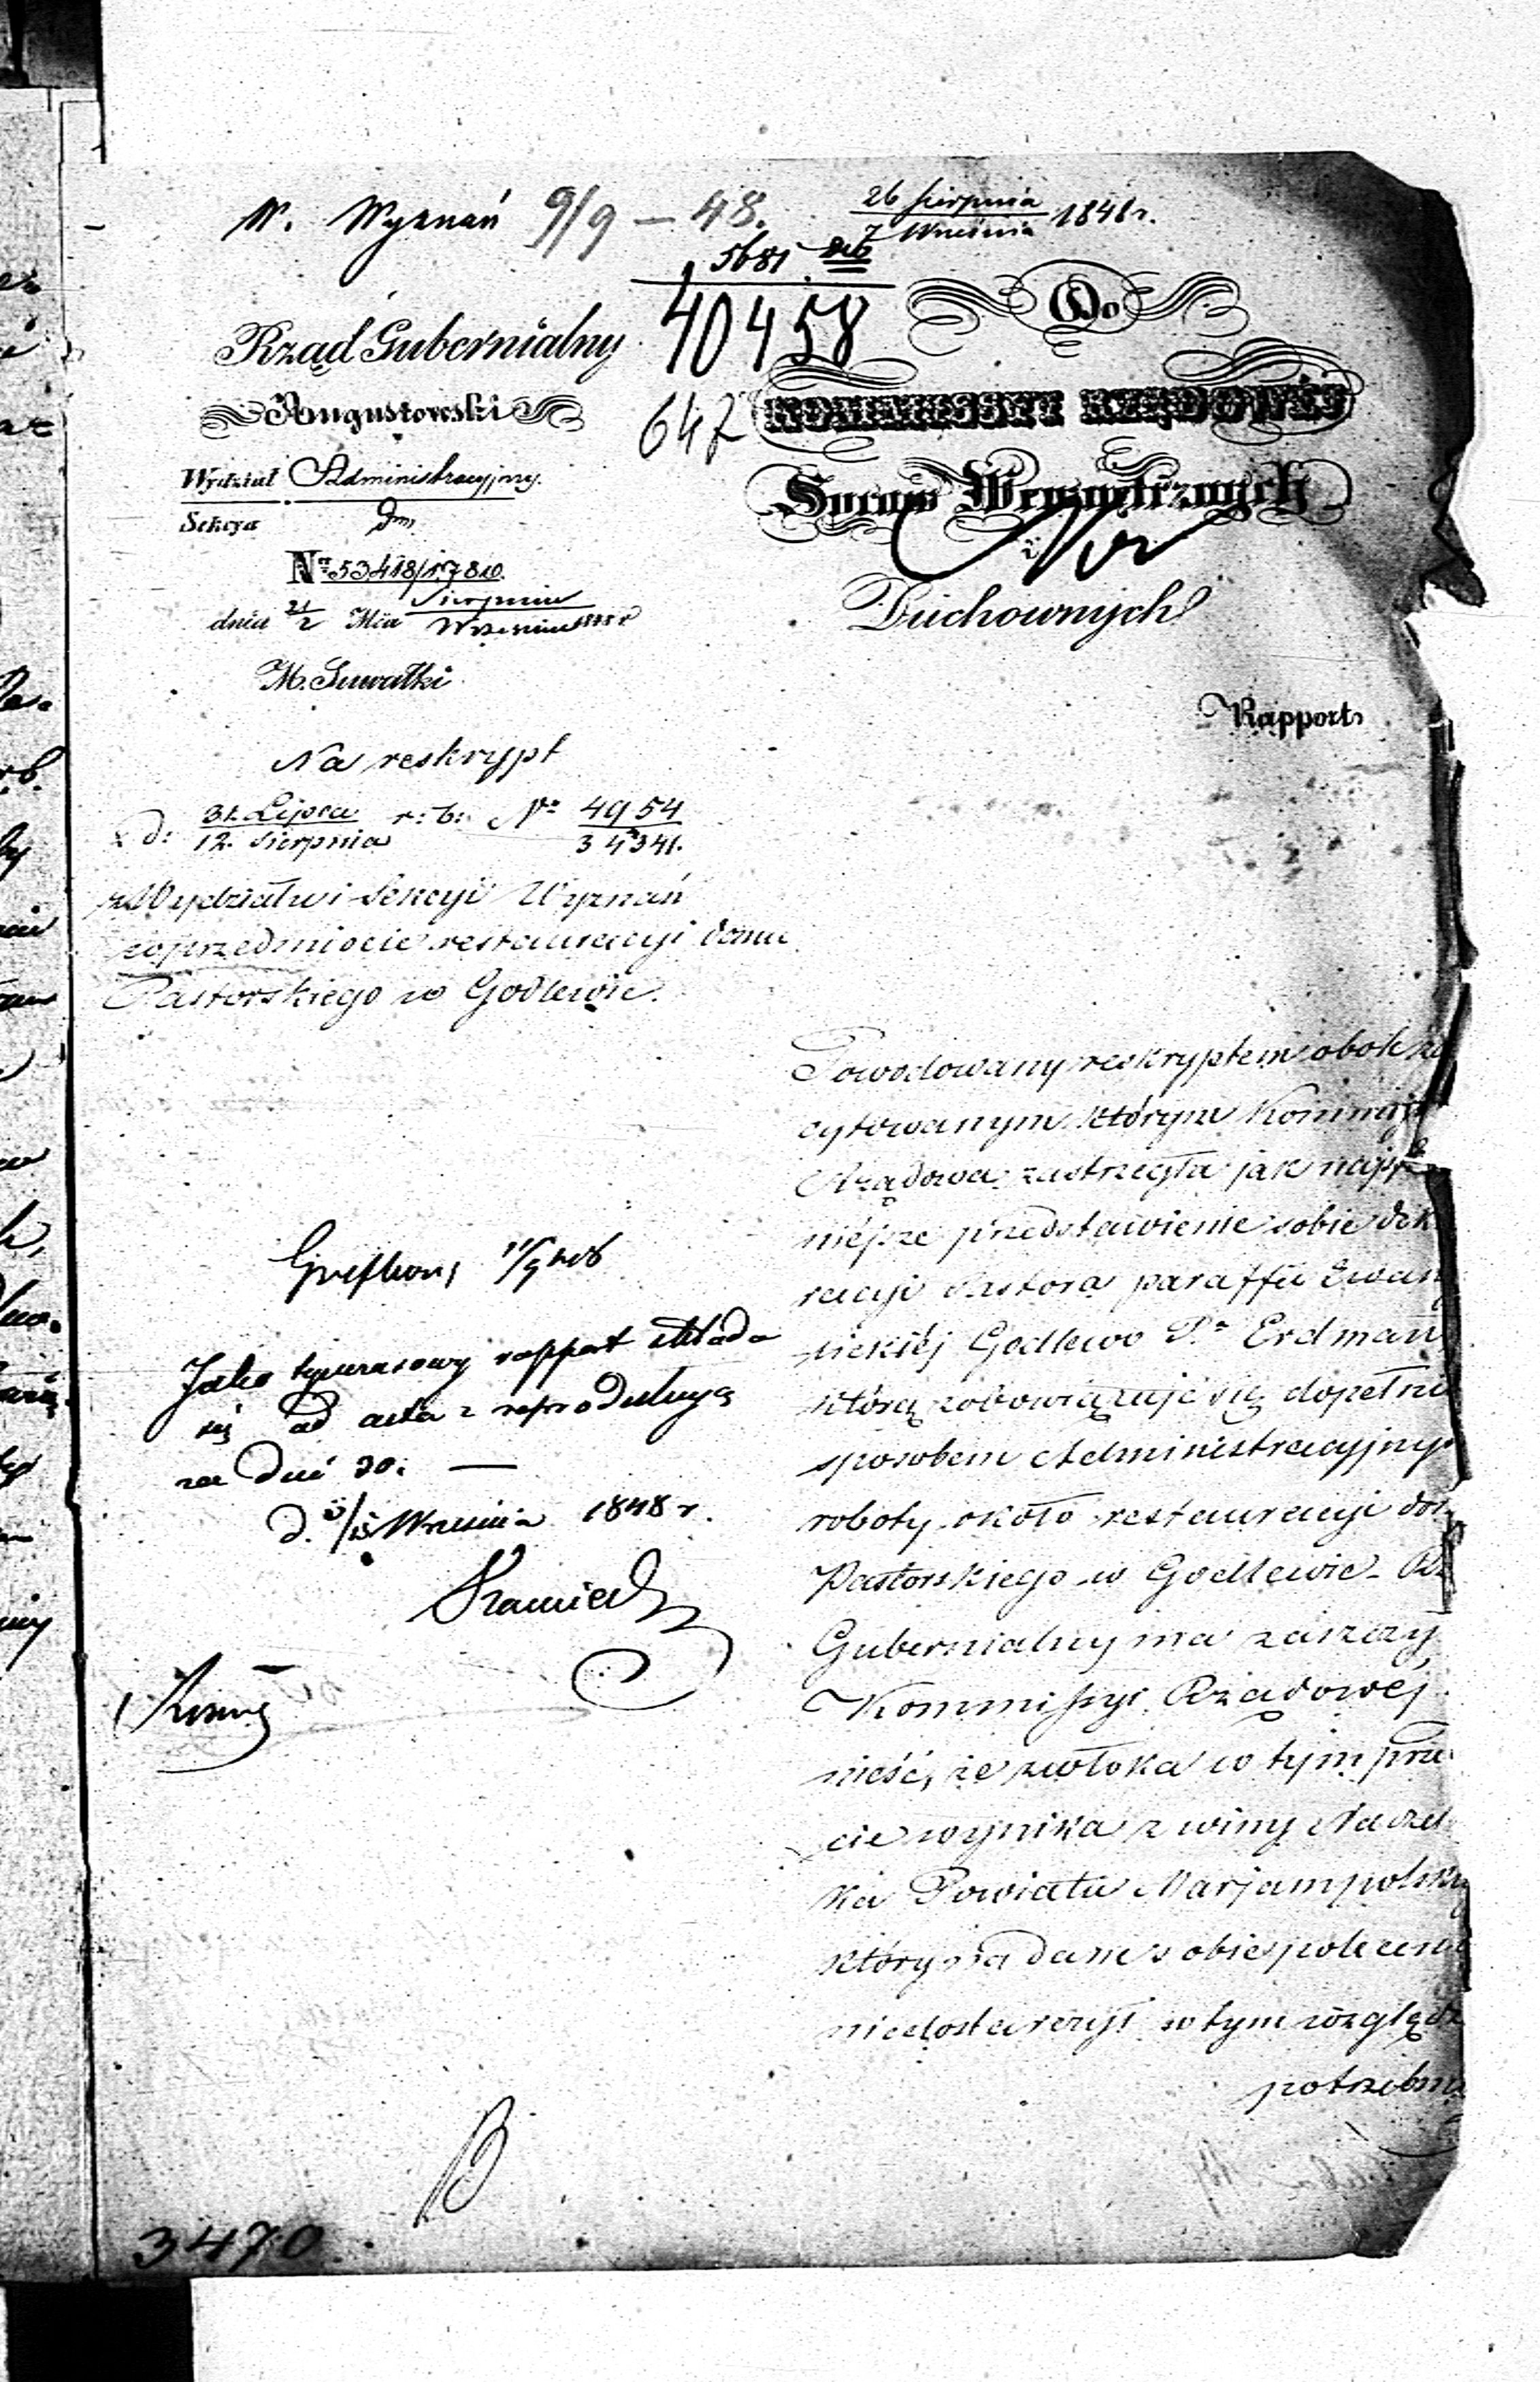 W. Wyznań 9/9 – 48.
26 Sierpnia
7 Września 1848 r.
5681
40458
647
Rząd Gubernialny
Augustowski
Wydział Administracyjny.
Sekcya
Nr 53418/17810.
dnia 21/2 Mca Sierpnia
Września 1848 r
M. Suwałki
Do
KOMMISSYI RZĄDOWÉJ
Spraw Wewnętrznych
i
Duchownych
Rapport
Na reskrypt
z d: 31. Lipca r: b: Nr 4954
12. Sierpnia 34341.
z Wydziału i Sekcyi Wyznań
w przedmiocie restauracyi domu
Pastorskiego w Godlewie.
Powodowany reskryptem obok za
cytowanym, którym Kommissy
Rządowa zastrzegła jak najpr
niéjsze przedstawienie sobie dek
racyi Pastora paraffii Ewan
lickiéj Godlewo Pa Erdman
którą zobowiązuje się dopełni
sposobem Administracyjny
roboty około restauracyi dom
Pastorskiego w Godlewie. Rz
Gubernialny ma zaszczy
Kommissyi Rządowéj
nieść, że zwłoka w tym prze
cie wynika z winy Naczel
ka Powiatu Marjampolski
który na dane sobie polecen
niedostarczył w tym względz
potrzebny
Jako tymczasowy rapport składa
się ad acta z reprodukcyą
na dni 30. —
d. /15 Września 1848 r.
3470